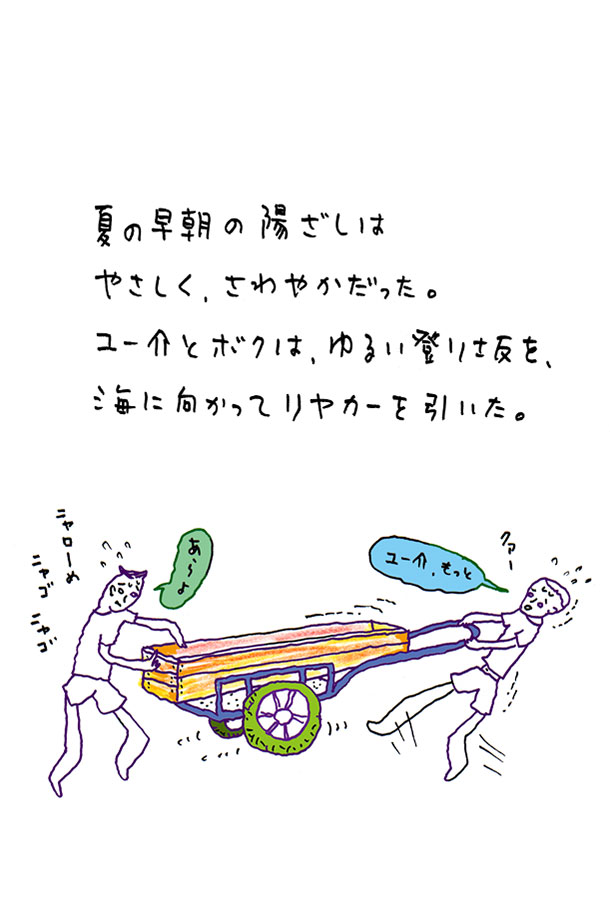 夏の早朝の陽ざしは
やさしく、さわやかだった。
ユー介とボクは、ゆるい登り坂を、
海に向かってリヤカーを引いた。
ニャローめ
ニャゴ
ニャゴ
あ、らよ
ユー介、もっと
クァー